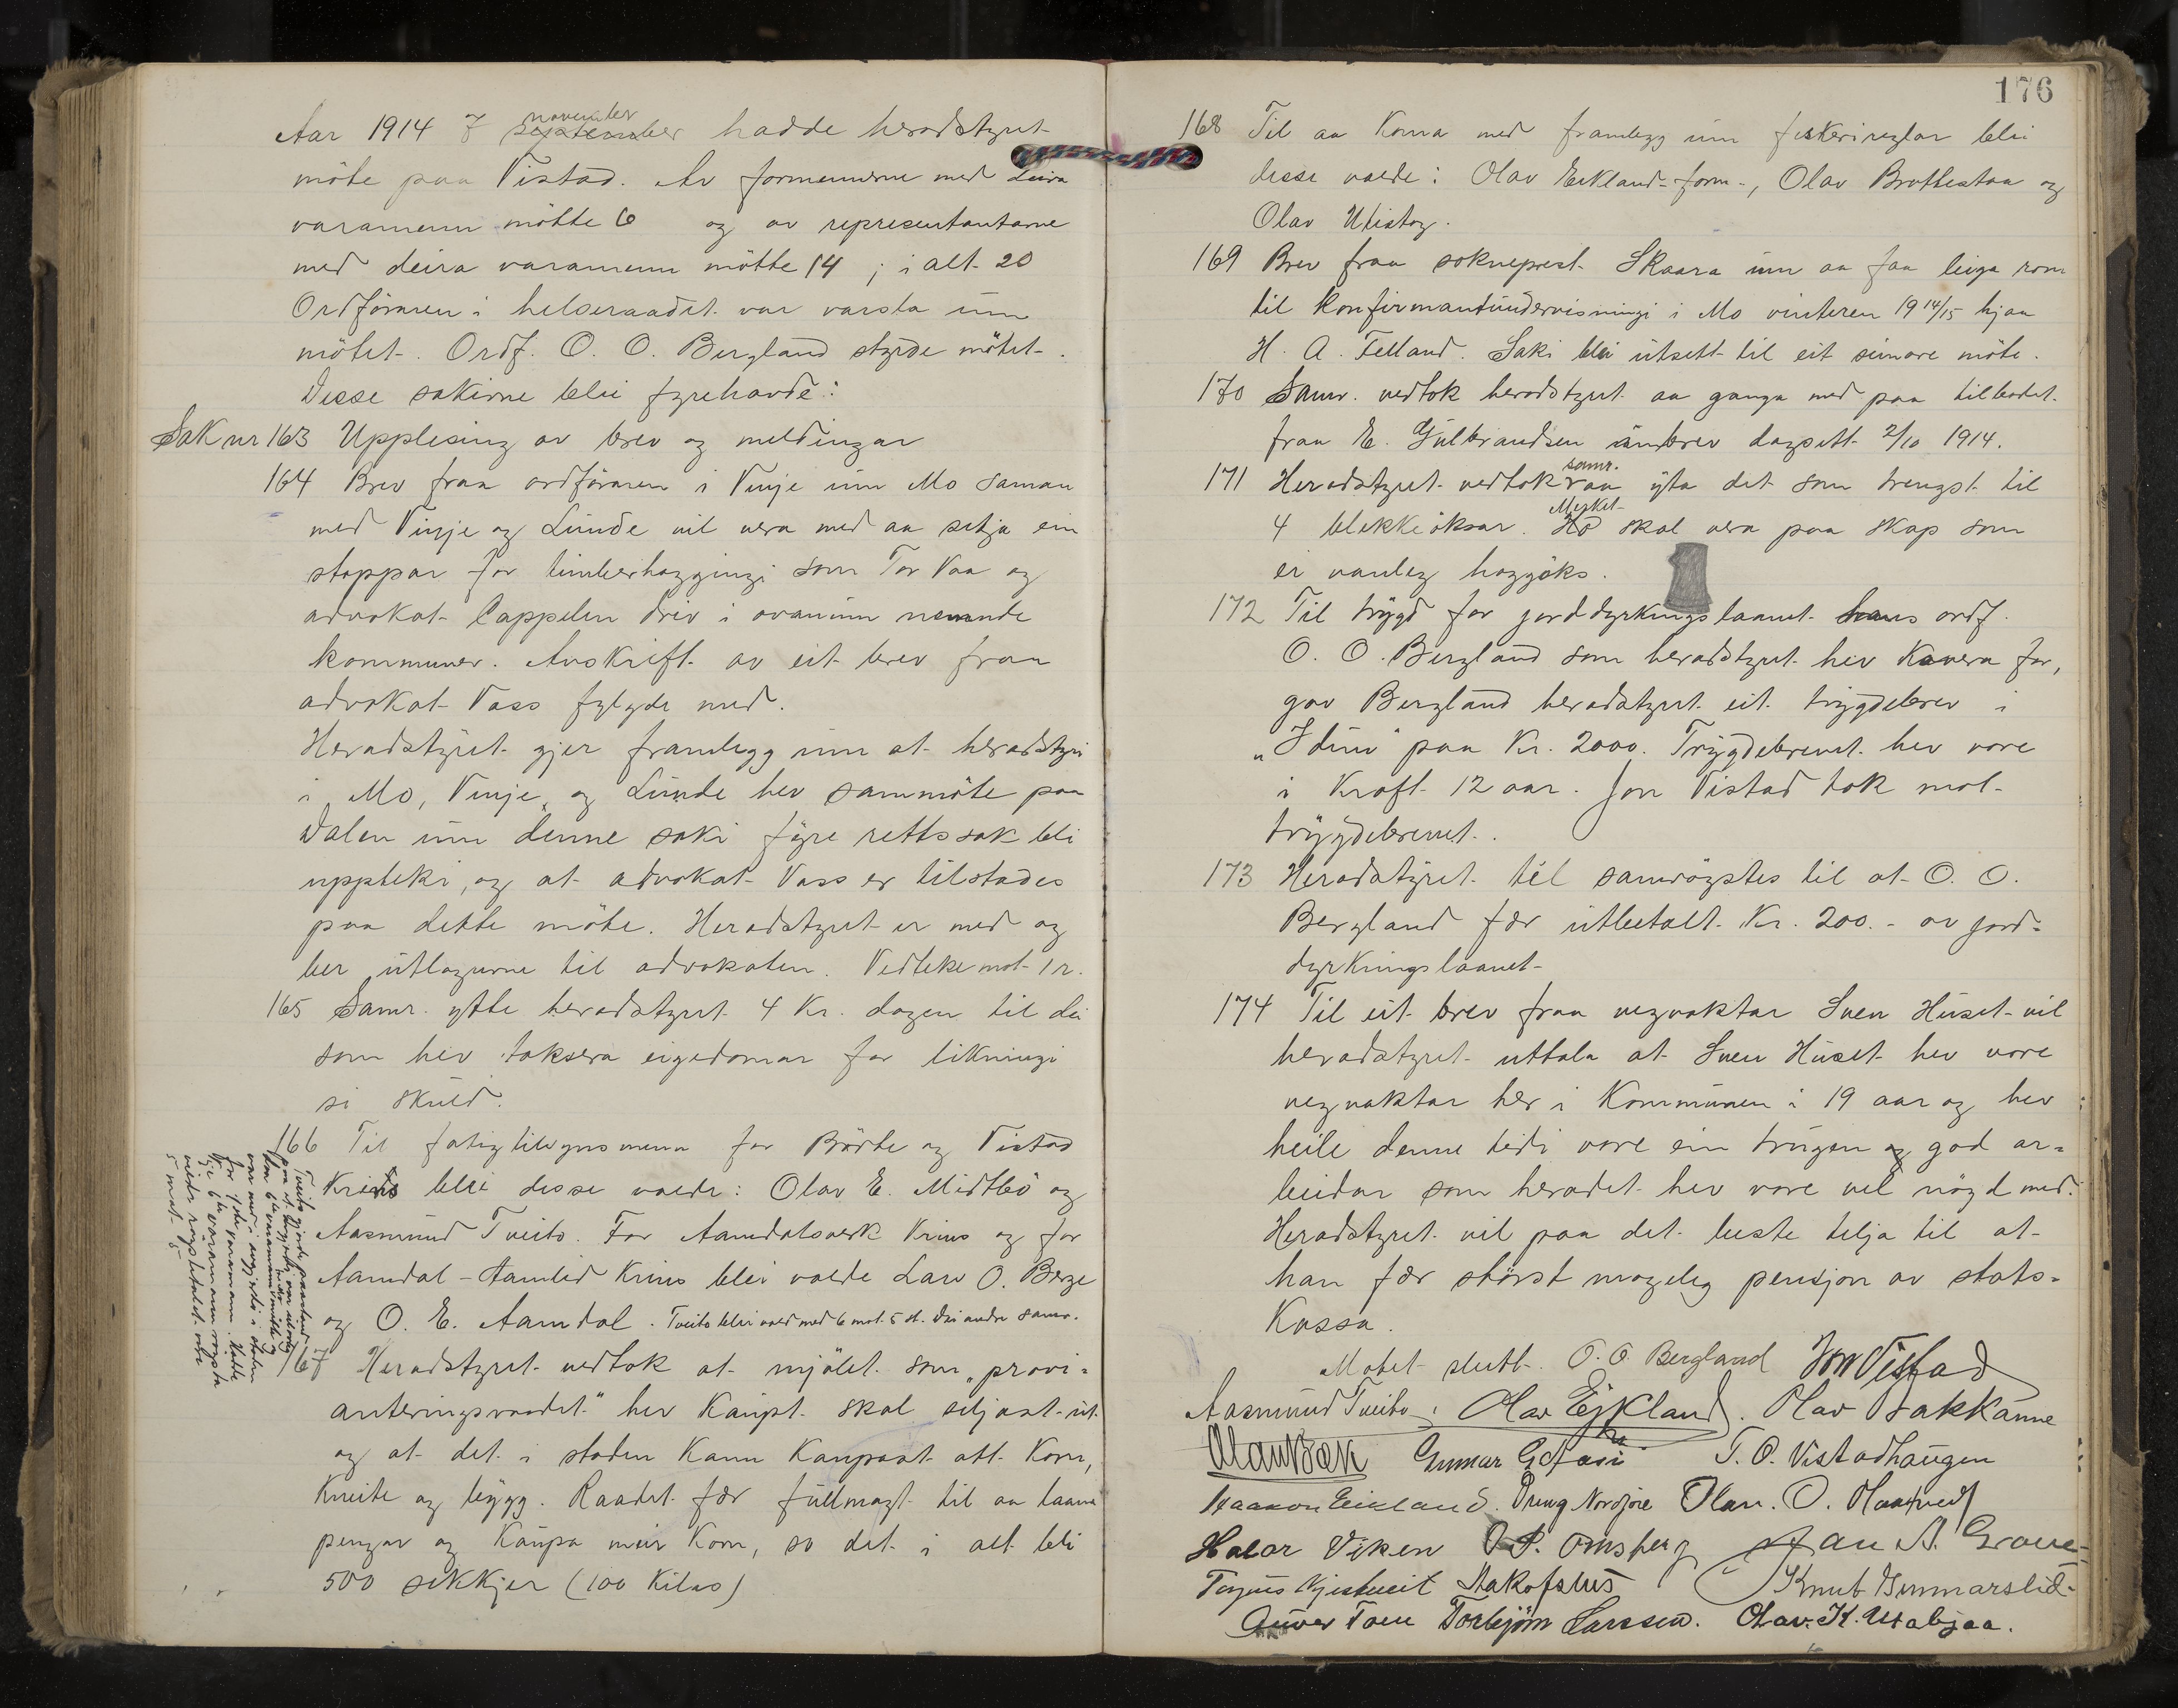 Aar 1914 7 september november hadde heradstyret
möte paa Vistad. Av formennerne med deira
varamenn mötte 6 og av representantarne
med deira varamenn mötte 14 ; i alt 20
Ordföraren i helseraadet var varsla um
mötet. Ordf. O. O. Bergland styrde mötet.
Desse sakirne blei fyrehavde:
Sak nr 163 Upplesing av brev og meldingar
164 Brev fraa ordföraren i Vinje um Mo saman
med Vinje og Lunde vil vera med aa setja ein
stoppar for timberhoggingi som Tor Vaa og
advokat Cappelen driv i ovanum nemnde
kommuner. Avskrift av eit brev fraa
advokat Vass fylgde med.
Heradstyret gjer framlegg um at heradstyri
i Mo, Vinje og Lunde hev sammöte paa
Dalen um denne saki fyre rettssak bli
uppteki, og at advokat Vass er tilstades
paa dette möte. Heradstyret er med og
ber utlogurne til advokaten. Vedteke mot 1 r.
165 Samr. ytte heradstyret 4 Kr. dagen til dei
som hev taksera eigedomar for likningi
si skuld.
166 Til fatigtilsynsmenn for Börte og Vistad
Krins blei desse valde: Olav E. Midtbö og
Aasmund Tveito. For Aamdalsverk Krins og for
Aamdal - Aamlid Krins blei valde Lav O. Berge
og O. E. Aamdal. Tveito blei vald med 6 mot 5 st. Dei andre samr.
Tveito gjorde paastand
paa at
5 mot 5
167 Heradstyret vedtok at mjölet som „provi=
anteringsraadet" hev Kaupt skal seljast ut
og at det i staden Kann Kaupast att Korn,
Kveite og bygg. Raadet fær fullmagt til aa laane
pengar og Kaupa meir Korn, so det i alt bli
500 sekkjer (100 Kilos)
176
168 Til aa Koma med framlegg um fiskerireglar blei
desse valde: Olav Eikland - form -, Olav Brottestaa og
Olav Utistog.
169 Brev fraa sokneprest Skaara um aa faa leiga rom
til Konfirmantundervisningi i Mo vinteren 19 14/15 hjaa
H. A. Felland. Saki blei utsett til eit seinare möte.
170 Samr. vedtok heradstyret aa ganga med paa tilbodet
fraa E. Gulbrandsen i brev dagsett 2/10 1914.
171 Heradstyret vedtok samr. aa yta det som trengst til
4 blekkeöksar. Merket skal vera paa skap som
ei vanleg hoggöks.
172 Til trygd for jorddyrkingslaanet hans ordf.
O. O. Bergland som heradstyret hev Kavera for,
gav Bergland heradstyret eit trygdebrev i
„Idun" paa Kr. 2000. Trygdebrevet hev vore
i Kraft 12 aar. Jon Vistad tok mot
trygdebrevet.
173 Heradstyret til samröystes til at O. O.
Bergland fær utbetalt Kr. 200.- av jord=
dyrkingslaanet
174 Til eit brev fraa vegvaktar Sven Huset vil
heradstyret uttala at Sven Huset hev vore
vegvaktar her i Kommunen i 19 aar og hev
heile denne tidi vore ein trugen og god ar=
beidar som heradet hev vore vel nögd med.
Heradstyret vil paa det beste telja til at
han fær störst mogeleg pensjon av stats=
Kassa.
Motet slutt. O. O. Bergland Jon Vistad
Aasmund Tveito. Olav Eikland. Olav Bakkanne
Gunnar T. O. Vistadhaugen
Haakon Eikland. Dreng Nordjore Olav. O.
Halvor Viken O. S. Omsberg
Torgeus Kjestveit Knut Gunnarslid
Torbjörn Larssen. Olav. K. Utabjaa.